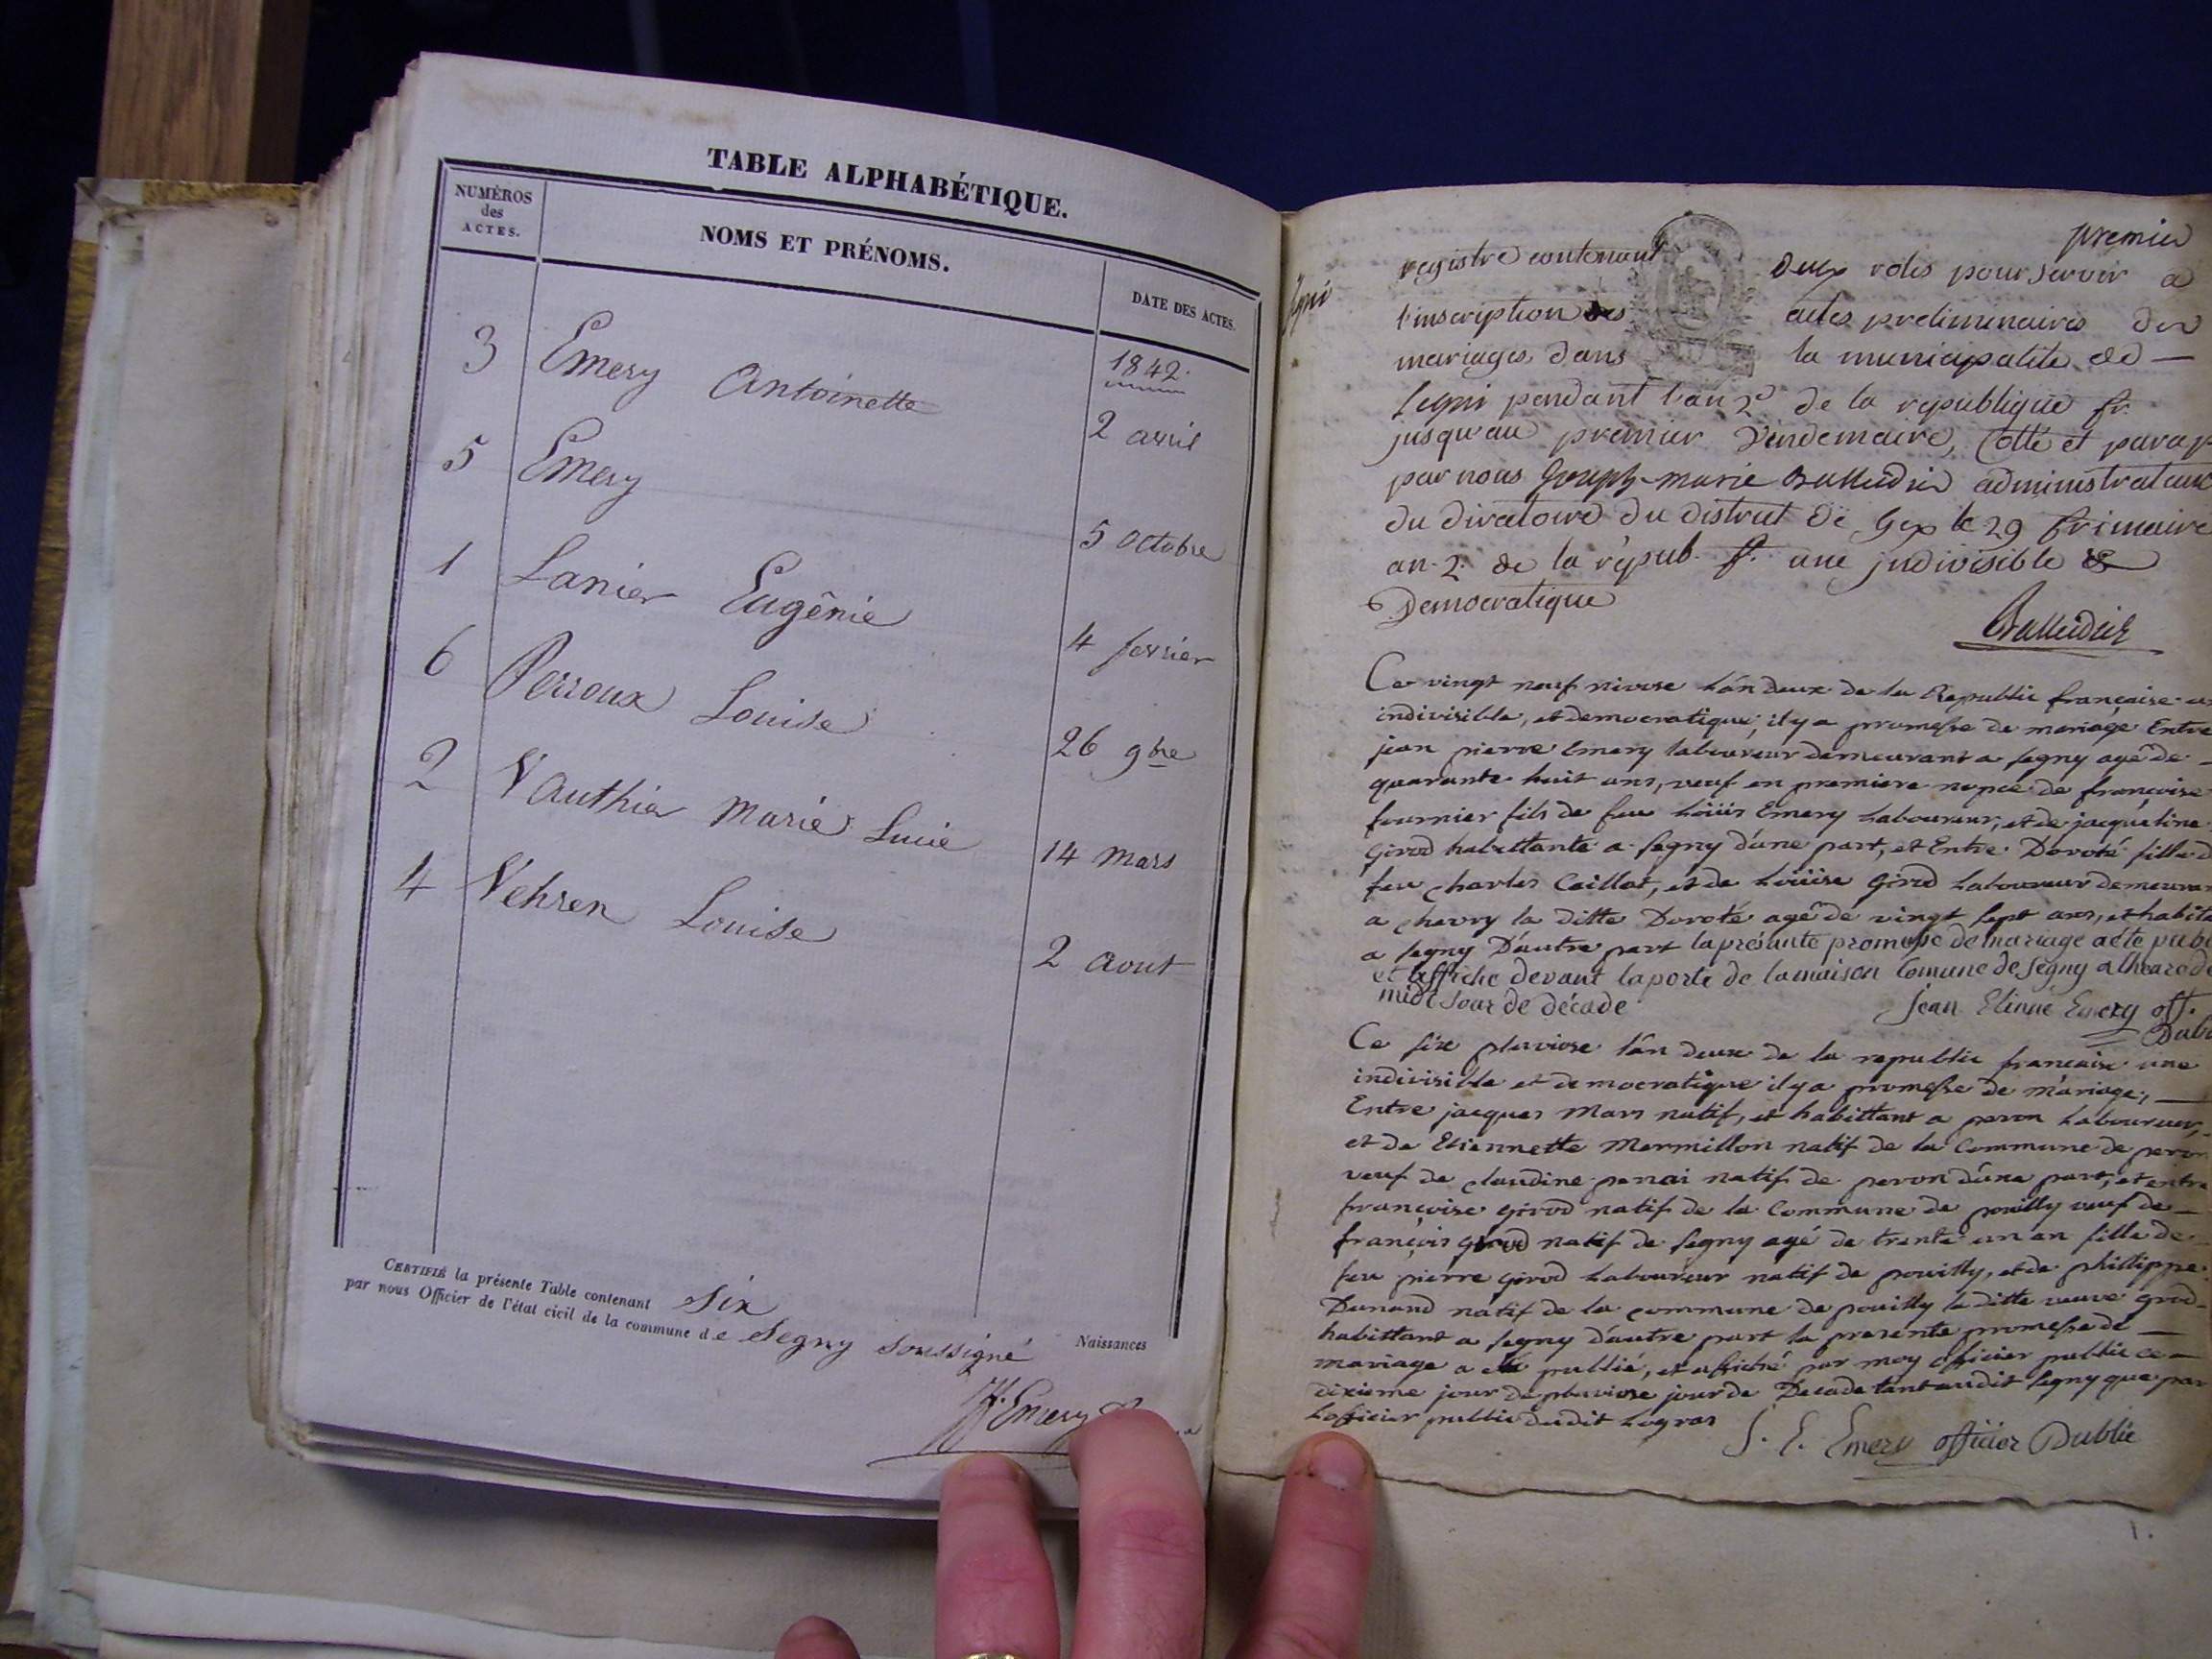 TABLE ALPHABÉTIQUE.
NUMÉROS des ACTES.
NOMS ET PRÉNOMS.
DATE DES ACTES.
1842.
3 Emery Antoinette 2 avril
5 Emery 5 Octobre
1 Lanier Eugênie 4 fevrier
6 Perroux Louise 26 9bre
2 Vauthier Marie Lucie 14 mars
4 Vehren Louise 2 aout
CERTIFIÉ la présente Table contenant six Naissances
par nous Officier de l'état civil de la commune de Segny soussigné
Emery
premier
registre contenant deux roles pour servir a
l'inscription des actes preliminaires des
mariages dans la municipalite de —
Segni pendant l'an 2e de la republique fr.
jusqu'au premier Vendemaire, Cotté et parap
par nous Joseph-marie Balleidier administrateur
du directoire du district de Gex le 29 frimaire
an 2. de la répub. f. une indivisible &
Democratique
Balleidier
Ce vingt neuf nivose l'an deux de la Republic française un
indivisible, et democratique, il y a promesse de mariage Entre
jean pierre Emery laboureur demeurant a segny agé de —
quarante huit ans, veuf en premiere nopce de françoise
fournier fils de feu Loüis Emery Laboureur, et de jacqueline
Girod habittante a segny d'une part, et Entre Doroté fille d
feu charles Caillat, et de Loüise Girod Laboureur demeuran
a chevry la ditte Doroté agé de vingt sept ans, et habita
a segny D'autre part la présente promesse de mariage a été publ
et affiche devant la porte de la maison Comune de Segny a lheure de
midi Jour de décade
Jean Etienne Emery off.
Publ
Ce six pluviose l'an deux de la republic francaise une
indivisible et democratique il y a promesse de mariage, —
Entre jacques Mars natif, et habittant a peron Laboureur,
et de Etiennette Mermillon natif de la Commune de peron
veuf de claudine penai natif de peron d'une part, et entre
françoise Girod natif de la Commune de pouilly veuf de —
françois girod natif de segny agé de trente un an fille de
feu pierre Girod Laboureur natif de pouilly, et de phillippe
Dunand natif de la commune de pouilly la ditte veuve girod
habittant a segny d'autre part la presente promesse de —
mariage a été publié, et affiché par moy officier public ce —
dixieme jour de pluviose jour de Decade tant audit segny que par
L'officier public dudit Logras
J. E. Emery officier Public
1.